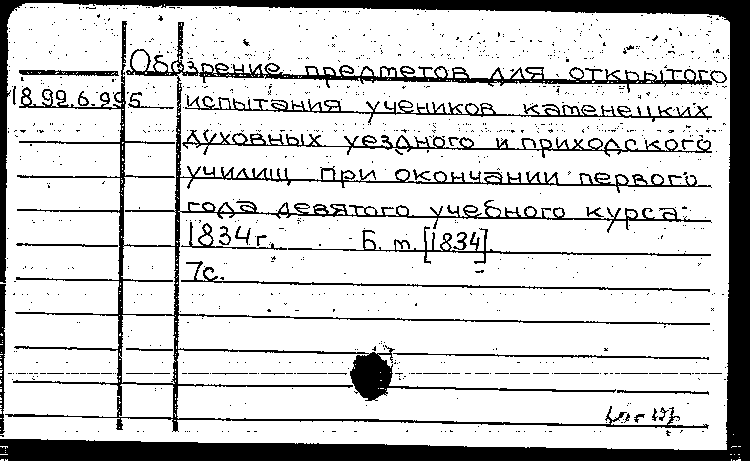 Обозрение предметов для открытого
18.99.6.995 испытания учеников каменецких
духовных уездного и приходского
училищ при окончании первого
года девятого учебного курса
1834г. Б. т. [1834].
7с.